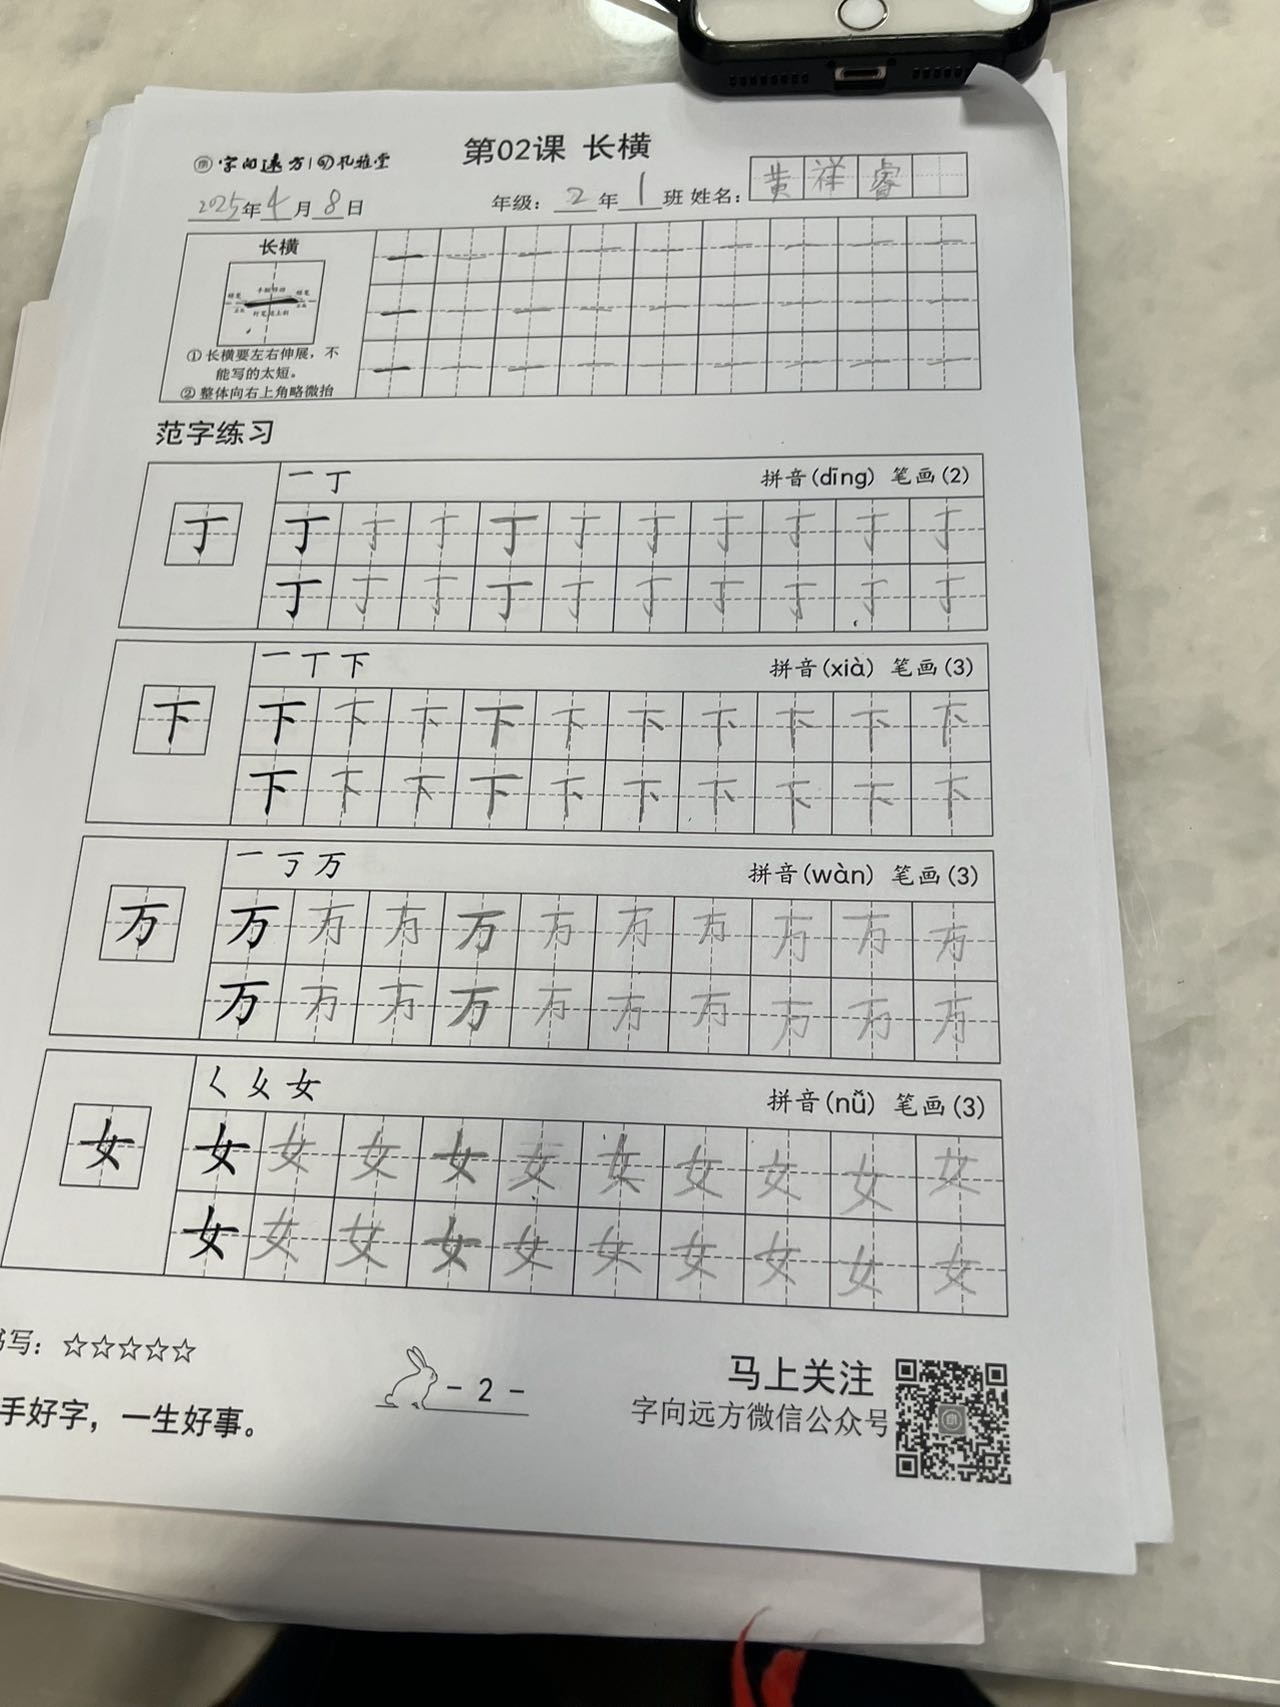 字向远方 孔雅堂
第02课 长横
2025年4月8日
年级：2年1班 姓名：黄祥睿
长横
① 长横要左右伸展，不
能写的太短。
② 整体向右上角略微抬
一 一 一 一 一 一 一 一 一
一 一 一 一 一 一 一 一 一
一 一 一 一 一 一 一 一 一
范字练习
一 丁 拼音(dīng) 笔画(2)
丁
丁 丁 丁 丁 丁 丁 丁 丁 丁 丁
丁 丁 丁 丁 丁 丁 丁 丁 丁 丁
一 丅 下 拼音(xià) 笔画(3)
下
下 下 下 下 下 下 下 下 下 下
下 下 下 下 下 下 下 下 下 下
一 丂 万 拼音(wàn) 笔画(3)
万
万 万 万 万 万 万 万 万 万 万
万 万 万 万 万 万 万 万 万 万
𡿨 女 拼音(nǚ) 笔画(3)
女
女 女 女 女 女 女 女 女 女 女
女 女 女 女 女 女 女 女 女 女
书写：☆☆☆☆☆
手好字，一生好事。
- 2 -
马上关注
字向远方微信公众号